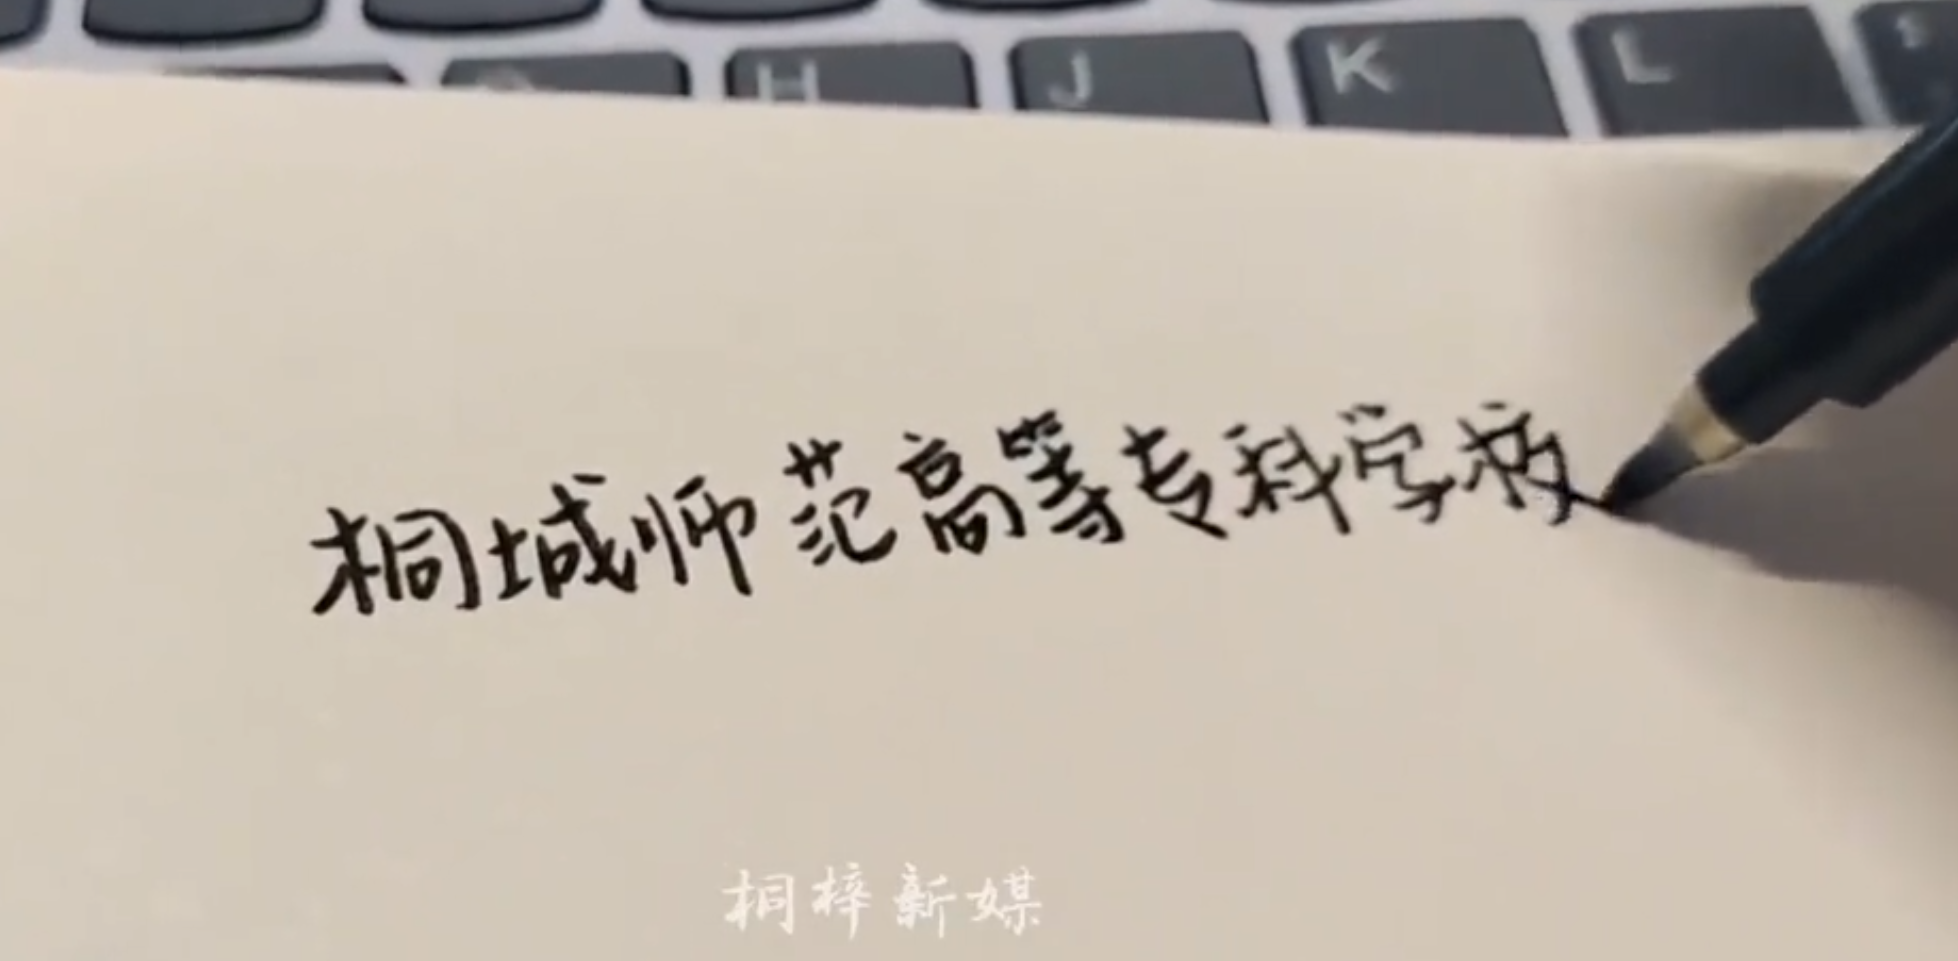 H J K L
桐城师范高等专科学校
桐梓新媒